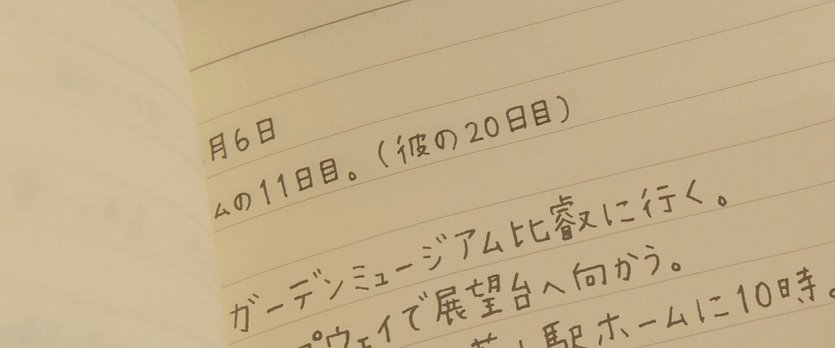 月6日
ムの11日目。(彼の20日目)
ガーデンミュージアム比叡に行く。
プウェイで展望台へ向かう。
駅ホームに10時。